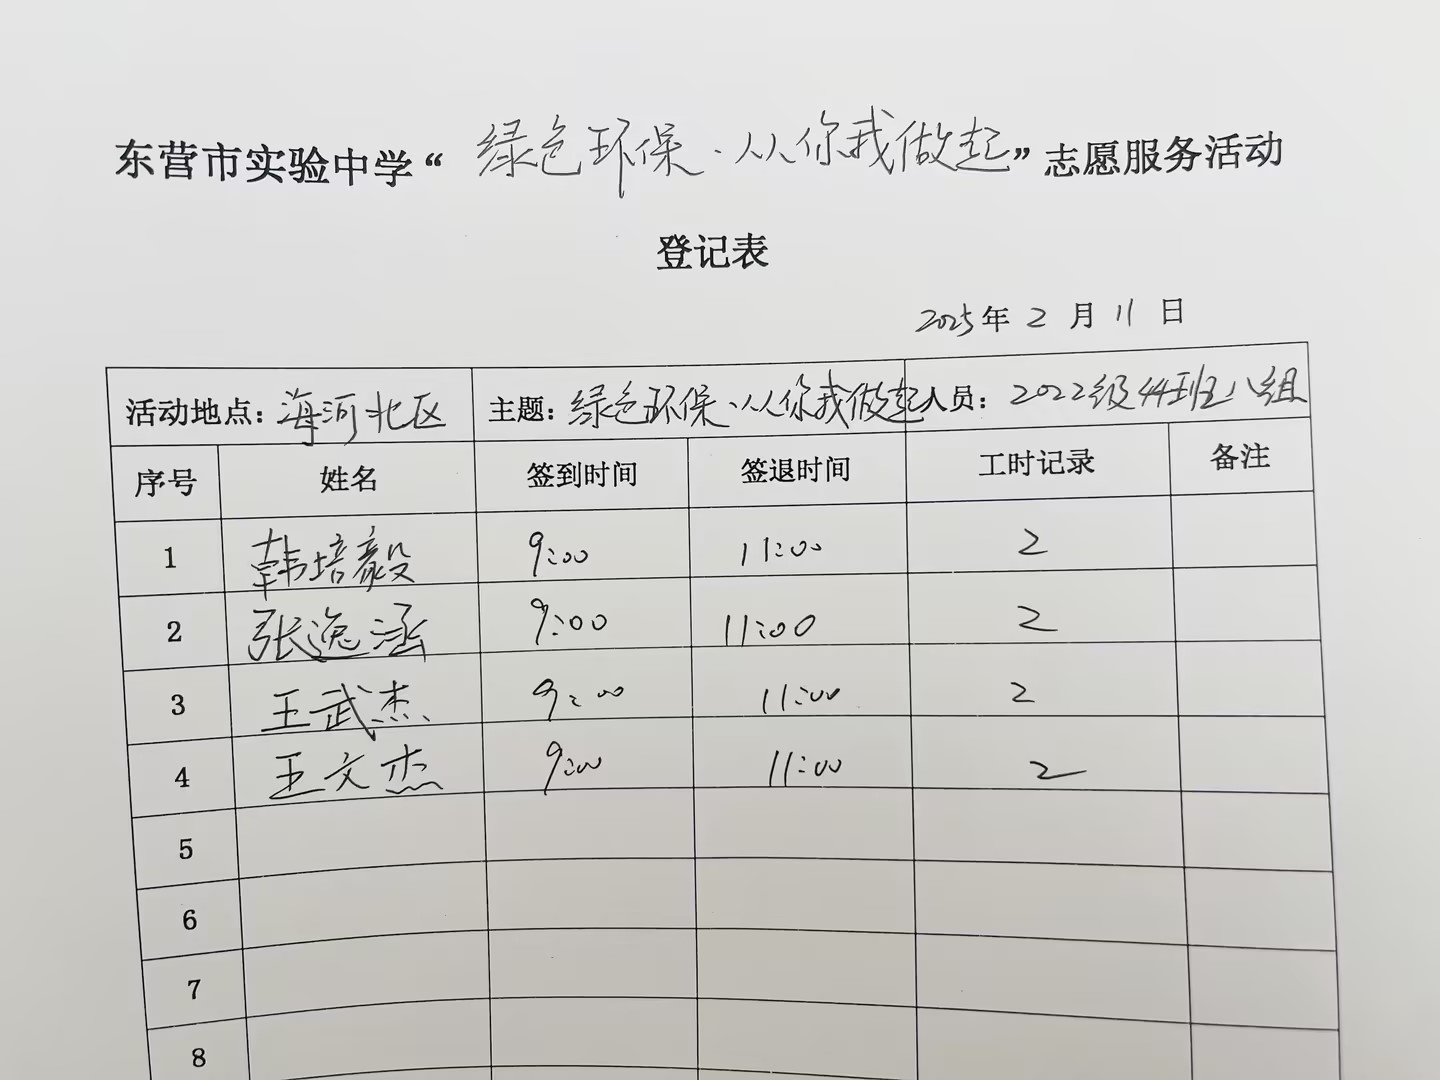 东营市实验中学“绿色环保·从你我做起”志愿服务活动
登记表
2025年 2 月 11 日
活动地点：海河北区 主题：绿色环保·从你我做起 人员：2022级44班八组
序号 姓名 签到时间 签退时间 工时记录 备注
1 韩培毅 9:00 11:00 2
2 张逸涵 9:00 11:00 2
3 王武杰 9:00 11:00 2
4 王文杰 9:00 11:00 2
5
6
7
8